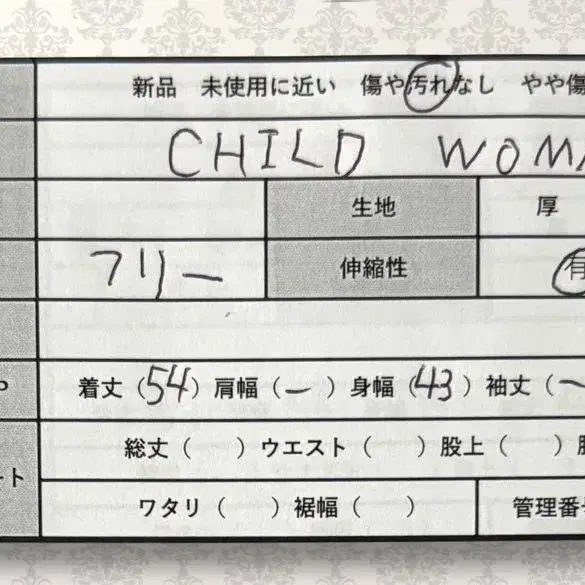 新品 未使用に近い 傷や汚れなし やや傷
CHILD WOMA
生地 厚
フリー 伸縮性 有
着丈（54）肩幅（ー）身幅（43）袖丈（ー
総丈（ ）ウエスト（ ）股上（ ）
ート
ワタリ（ ）裾幅（ ） 管理番号